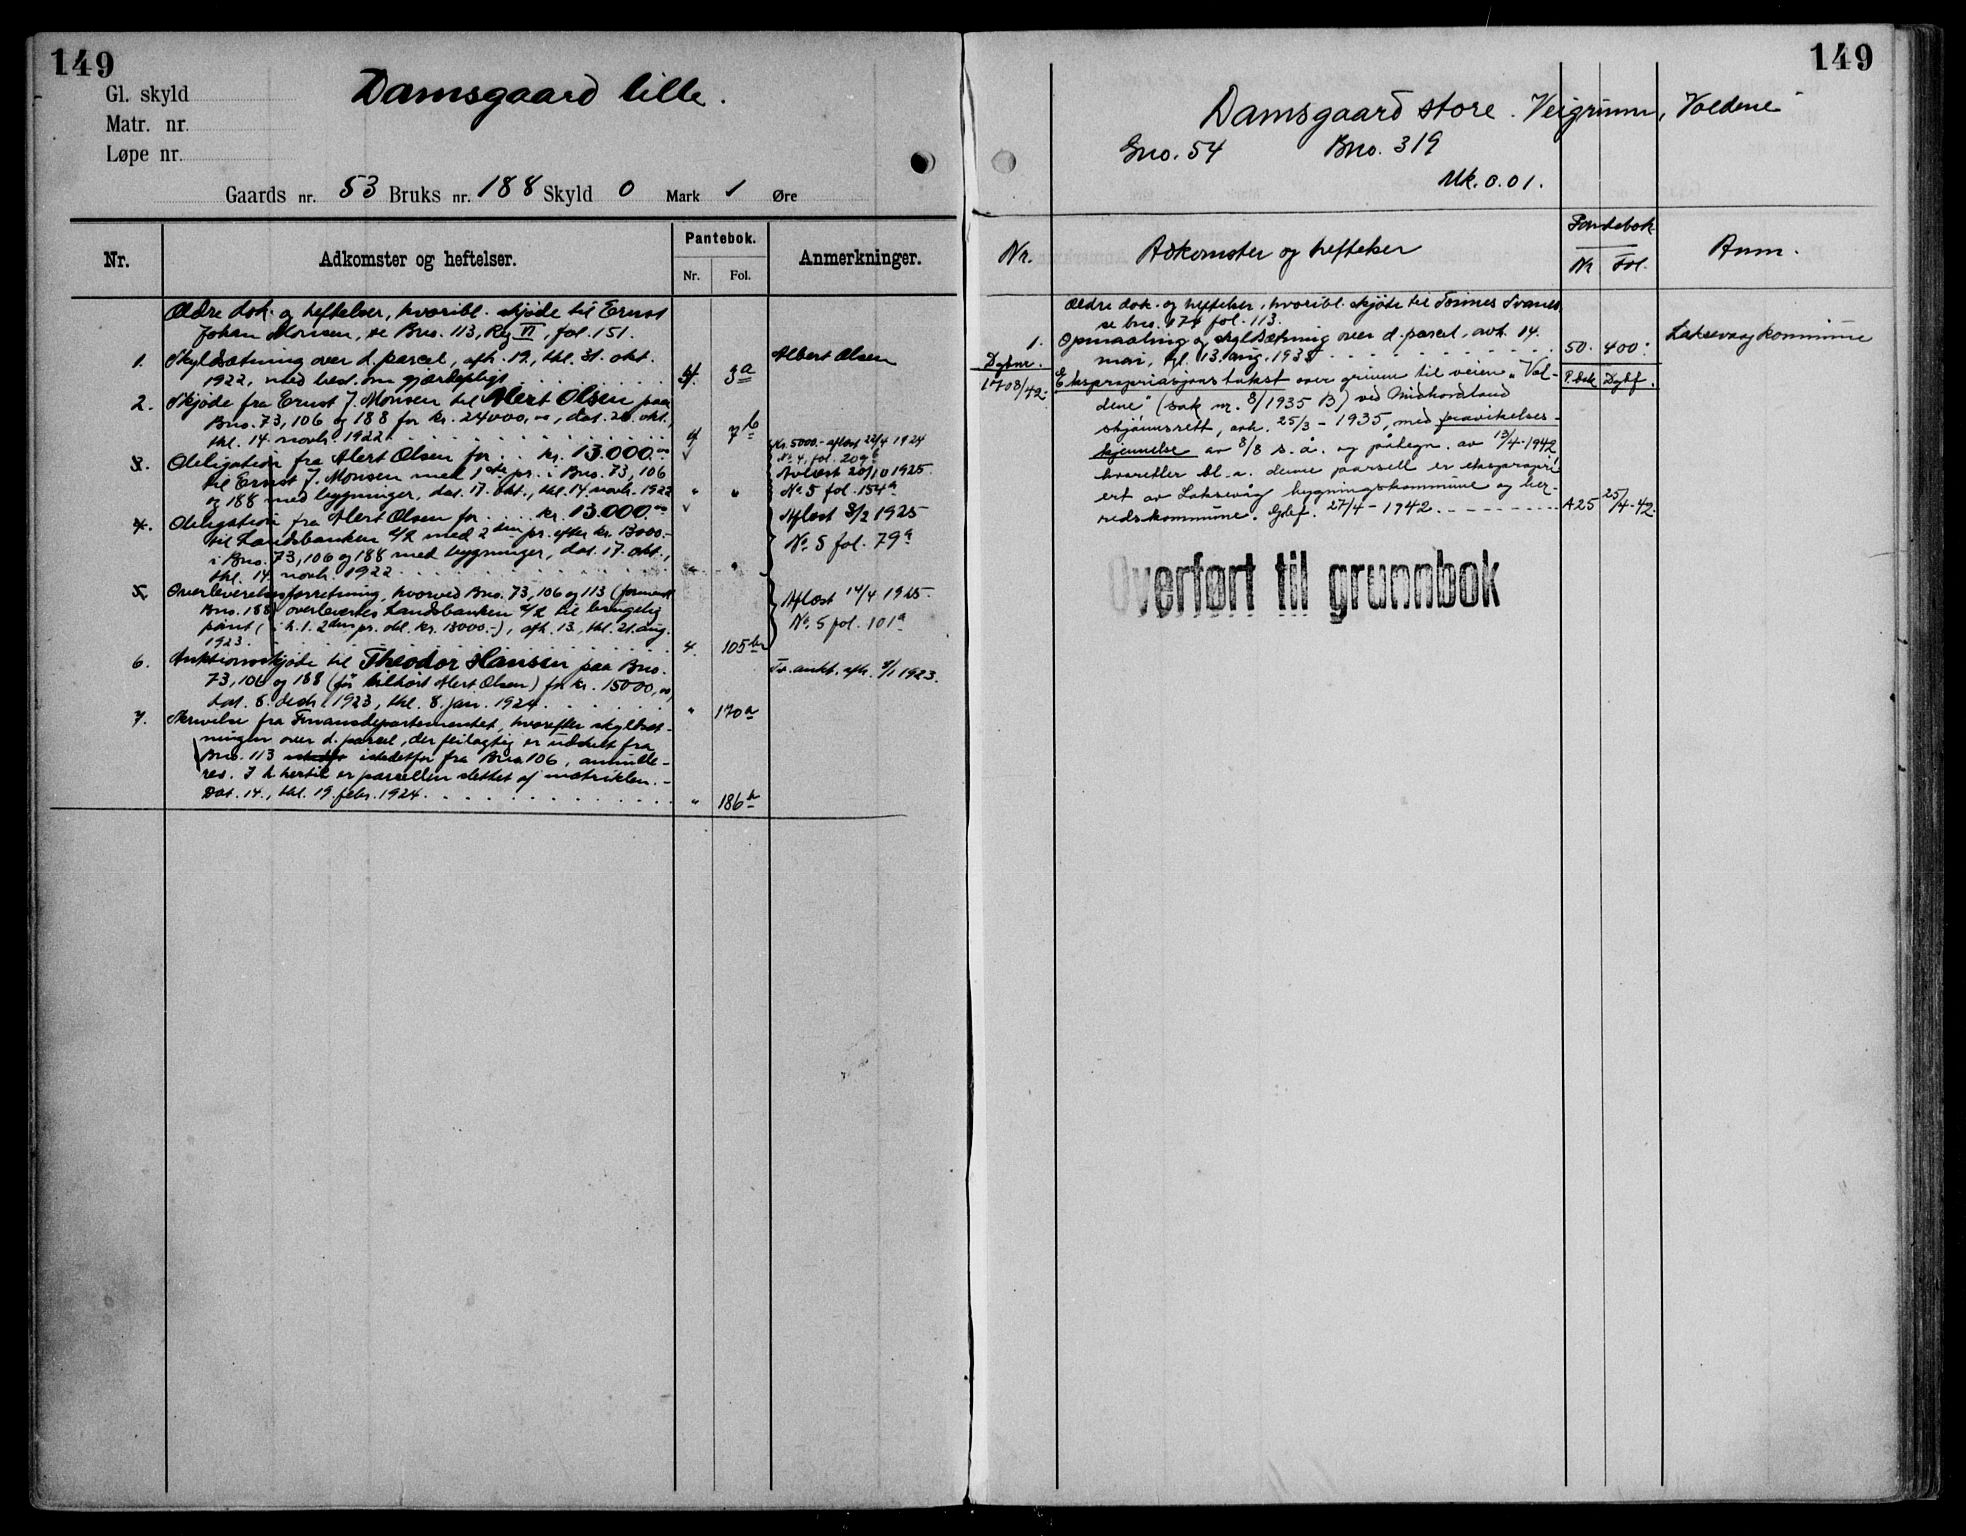 149
Gl. skyld
Matr. nr.
Løpe nr.
Damsgaard lille.
Gaards nr. 53 Bruks nr. 188 Skyld 0 Mark 1 Øre
Nr.
Adkomster og heftelser.
Pantebok.
Nr. Fol.
Anmerkninger.
Ældre dok. og heftelser, hvoribl. skjøde til Ernst
Johan Monsen, se Bno. 113, Reg VI, fol. 151.
1. Skyldsætning over d. parcel, afh. 19, thl. 31. okt.
1922, med best. om gjærdepligt 4 3a
Albert Olsen
2. Skjøde fra Ernst J. Monsen til Albert Olsen paa
Bno. 73, 106 og 188 for kr. 24000,00, dat. 20. okt.,
thl. 14. novbr. 1922 4 7b
3. Obligation fra Albert Olsen for kr. 13.000,00
til Ernst J. Monsen med 1ste pr. i Bno. 73, 106
og 188 med bygninger, dat. 17. okt., thl. 14. novb. 1922 " "
Kr. 5000.- aflæst 22/4 1924
No. 4, fol. 209b
Avlæst 20/10 1925.
No. 5 fol. 154a
4. Obligation fra Albert Olsen for kr. 13.000,00
til Landsbanken A/S med 2den pr. efter kr. 13000.-
i Bno. 73, 106 og 188 med bygninger, dat. 17. okt.,
thl. 14. novbr. 1922 " "
Aflæst 3/2 1925
No. 5 fol. 79a
5. Overleverelsesforretning, hvorved Bno. 73, 106 og 113 (forment
Bno. 188) overleveres Landsbanken A/S til brugelig
pant (i h. t. 2den pr. obl. kr. 13000.-), afh. 13., thl. 21. aug.
1923 4. 105b
Aflæst 14/4 1925.
No. 5 fol. 101a
6. Auktionsskjøde til Theodor Hansen paa Bno.
73, 106 og 188 (før tilhørt Albert Olsen) for kr. 15000,00
dat. 8. decbr. 1923, thl. 8. jan. 1924 " 170a
Tv. aukt. afh. 9/1 1923.
7. Skrivelse fra Finansdepartementet, hvorefter skyldsæt-
ningen over d. parcel, der feilagtig er uddelt fra
Bno. 113 istedetfor fra Bno 106, annulle-
res. I h. hertil er parcellen slettet af matriklen. -
Dat. 14., thl. 19. febr. 1924 " 186b
149
Damsgaard store. Veigrunn, Voldene"
Gno. 54 Bno. 319
Mk. 0.01.
Nr.
Adkomster og heftelser
Pantebok
Nr Fol.
Anm.
Ældre dok. og heftelser, hvoribl. skjøte til Tomines Svanes
se bno. 174 fol. 113.
1. Opmaaling og skyldsætning over d. parcel, avh. 14.
mai, tgl. 13. aug. 1935 50. 400.
Laksevaag kommune
Dgbnr.
1708/42.
P. bok Dgbf.
Ekspropriasjonstakst over grunn til veien „Vol-
dene" (sak nr. 8/1935 B) ved Midhordland
skjønnsrett, avh. 25/3 - 1935, med fravikelses-
kjennelse av 8/8 s. å. og påtegn. av 13/4-1942,
hvoretter bl. a. denne parsell er ekspropri-
ert av Laksevåg bygningskommune og her-
redskommune. Gdbf. 27/4 - 1942 A25 25/4-42.
Overført til grunnbok